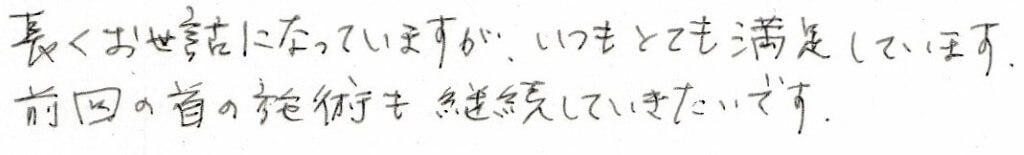 長くお世話になっていますが、いつもとても満足しています.
前回の首の施術も継続していきたいです.